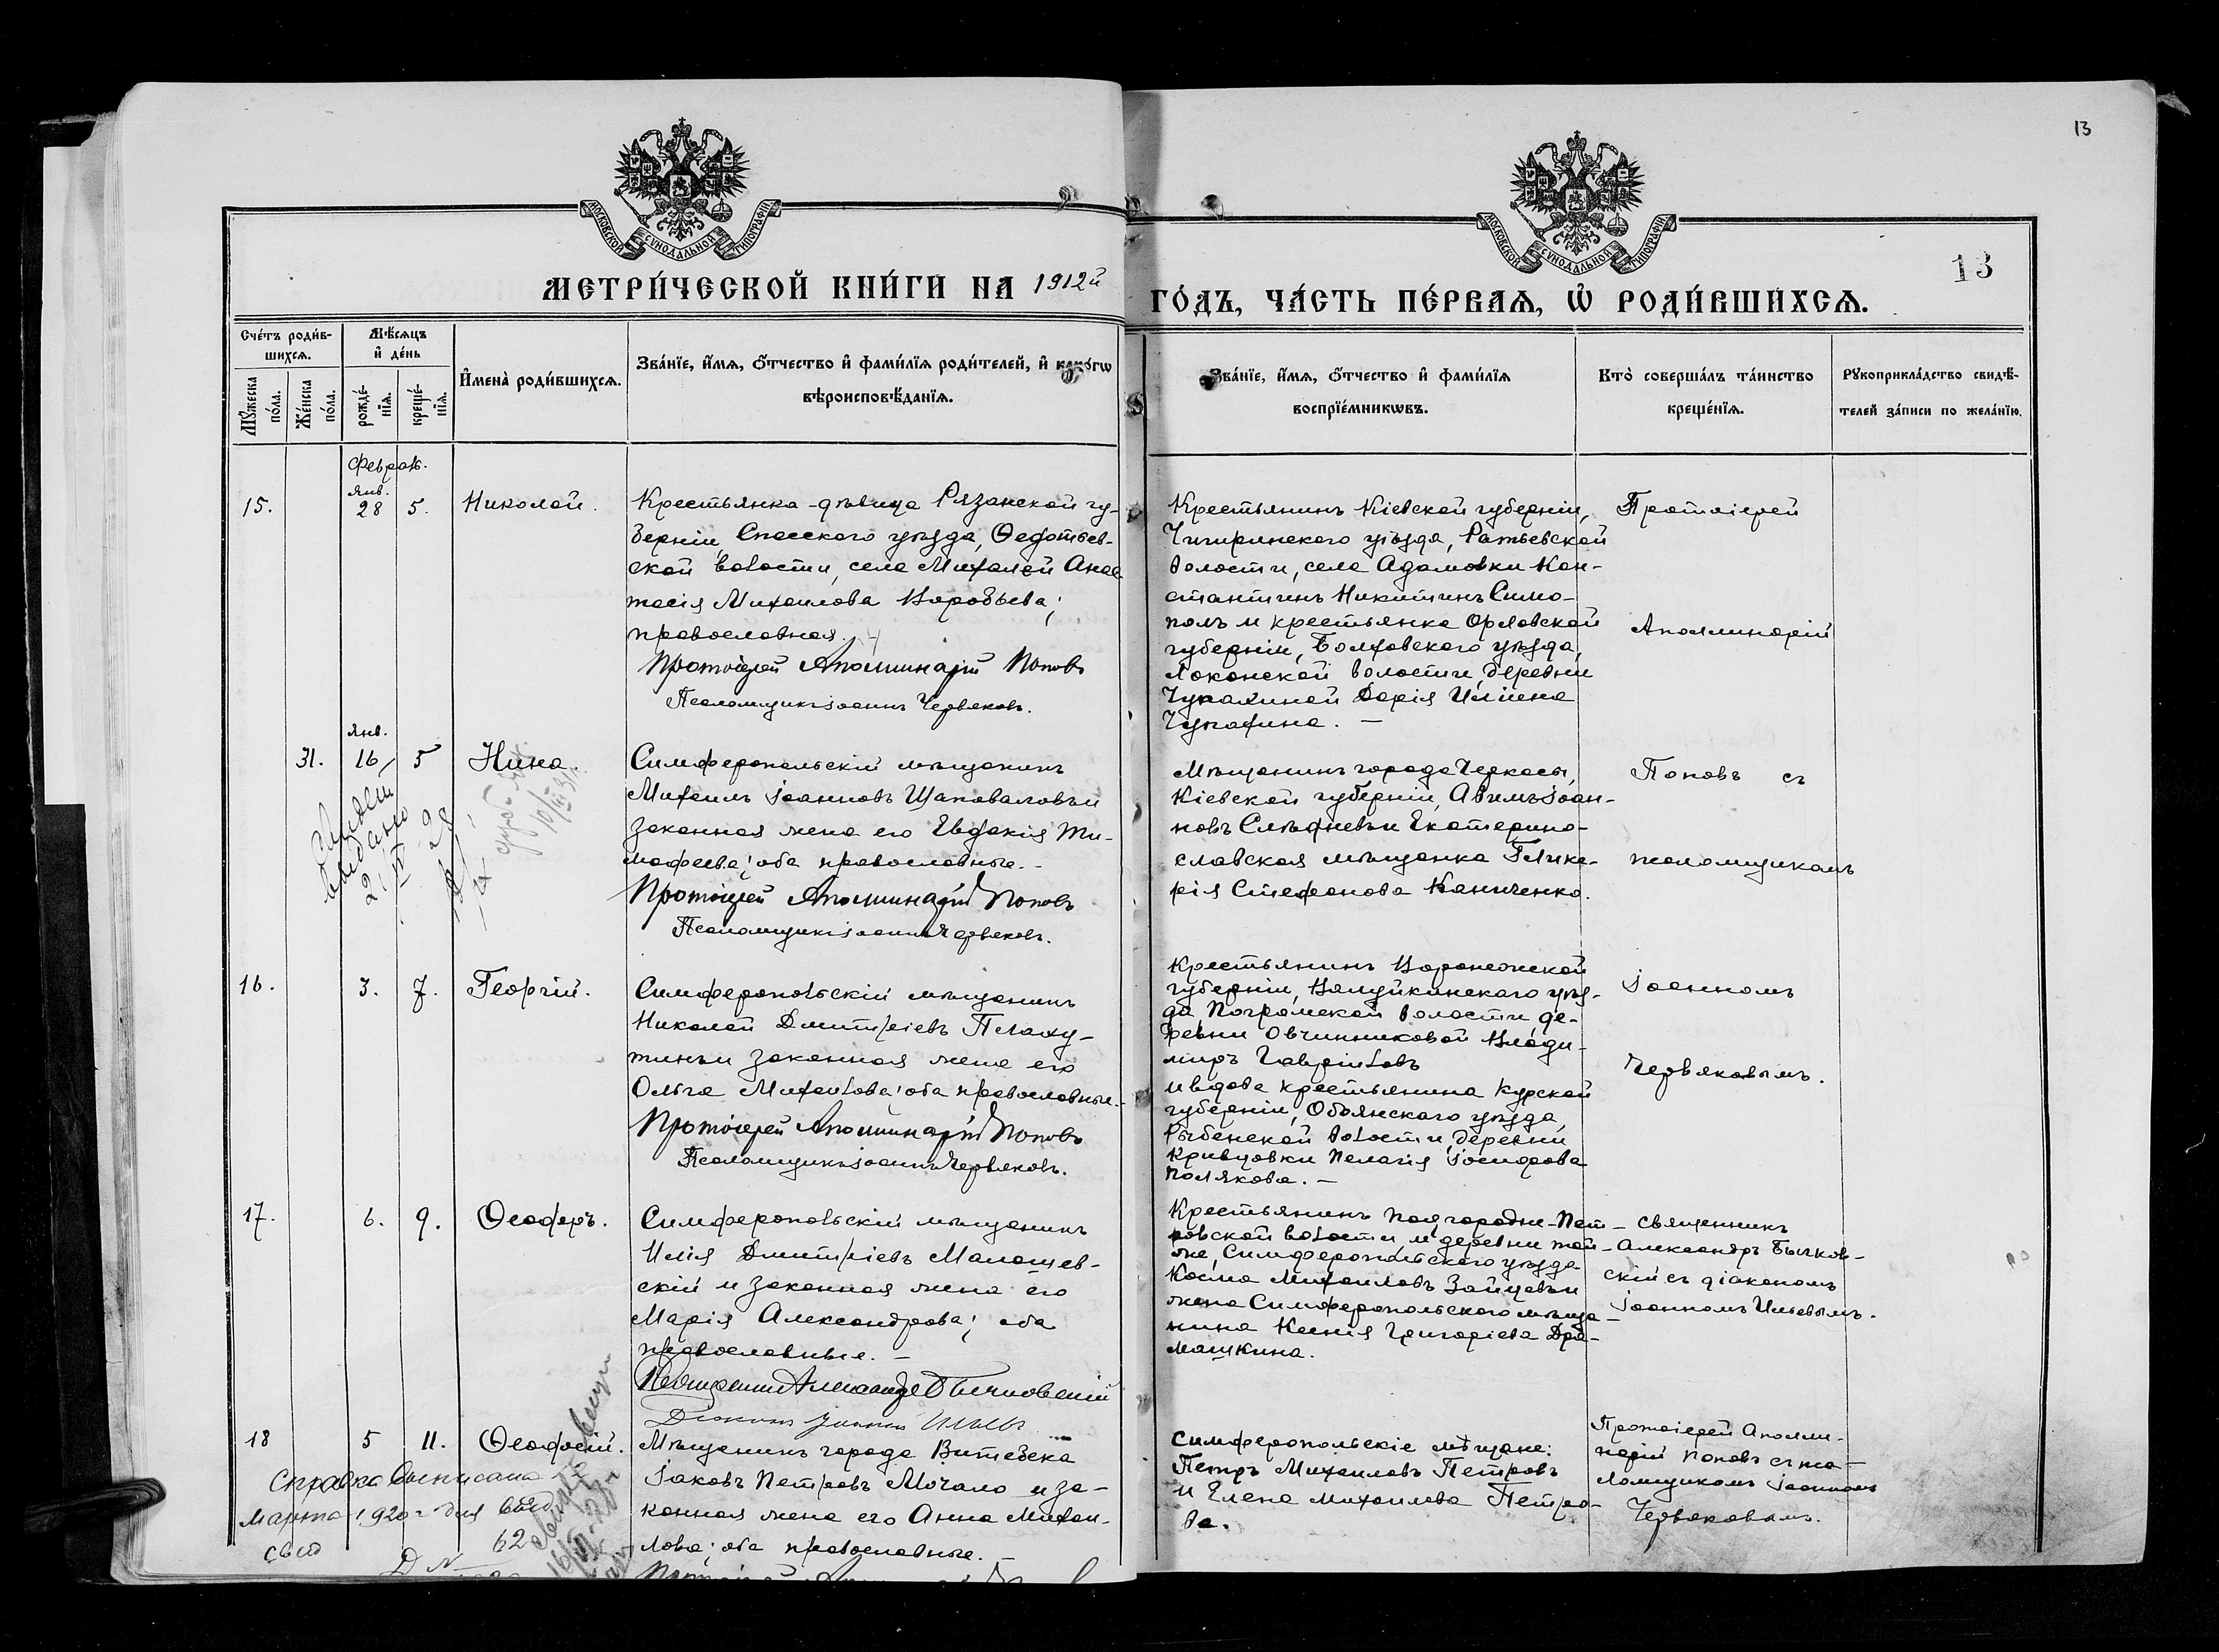 13
МОСКОВСКОЙ СУНОДАЛЬНОЙ ТИПОГРАФІИ
МОСКОВСКОЙ СУНОДАЛЬНОЙ ТИПОГРАФІИ
13
МЕТРИ́ЧЕСКОЙ КНИ́ГИ НА 1912й
ГО́ДЪ, ЧА́СТЬ ПЕ́РВАЯ, Ѡ҆ РОДИ́ВШИХСЯ.
Сче́тъ роди́в-
шихся.
Мꙋ́жеска по́ла.
Же́нска по́ла.
Мѣ́сяцъ
и҆ де́нь
рожде́-
нїя.
креще́-
нїя.
И҆мена̀ роди́вшихся.
Зва́нїе, и҆́мя, ѻ҆́тчество и҆ фами́лїя роди́телей, и҆ како́гѡ
вѣроисповѣ́данїя.
Зва́нїе, и҆́мя, ѻ҆́тчество и҆ фами́лїя
воспрїе́мникѡвъ.
Кто̀ соверша́лъ та́инство
креще́нїя.
Рꙋкоприкла́дство свидѣ́-
телей за́писи по жела́нїю.
Феврал.
15.
янв.
28
5.
Николай.
Крестьянка-дѣвица Рязанской гу-
берніи, Спасского уѣзда, Ѳедотьев-
ской волости, села Михалей Анас
тасія Михаилова Воробьева;
православная.
Протоіерей Аполлинарій Поповъ
Псаломщикъ Іоаннъ Червяковъ.
Крестьянинъ Кіевской губерніи,
Чигиринского уѣзда, Ратьевской
волости, села Адамовки Кон-
стантинъ Никитинъ Симо-
полъ и крестьянка Орловской
губерніи, Болховского уѣзда,
Локонской волости, деревни
Чупахиной Дарія Иліина
Чупахина. —
Протоіерей
Аполлинарій
31.
янв.
16
5
Нина.
Симферопольскій мѣщанинъ
Михаилъ Іоанновъ Шаповаловъ и
законная жена его Евдокія Ти-
мофеева; оба православные. -
Протоіерей Аполлинарій Поповъ
Псаломщикъ Іоаннъ Червяковъ.
Мѣщанинъ города Черкасы,
Кіевской губерніи, Авимъ Іоан-
новъ Слѣдневъ и Екатерино-
славская мѣщанка Глике-
рія Стефанова Каниченко.
Поповъ съ
псаломщикомъ
выдано
16.
3.
7.
Георгій.
Симферопольскій мѣщанинъ
Николай Дмитріевъ Плаху-
тинъ и законная жена его
Ольга Михаилова; оба православные.-
Протоіерей Аполлинарій Поповъ
Псаломщикъ Іоаннъ Червяковъ.
Крестьянинъ Воронежской
губерніи, Валуйкинского уѣз-
да, Погромской волости, де-
ревни Овчинниковой Влади-
миръ Гавріиловъ
и вдова крестьянина Курской
губерніи, Обоянскаго уѣзда,
Рыбенской волости, деревни
Кривцовки Пелагія Іосифова
Полякова. —
Іоанномъ
Червяковымъ.
17.
6.
9.
Ѳеодоръ.
Симферопольскій мѣщанинъ
Илія Дмитріевъ Малашев-
скій и законная жена его
Марія Александрова; оба
православные. —
Священникъ Александръ Бычковскій
Діаконъ Іоаннъ Ильевъ
Крестьянинъ Подгородне-Пет-
ровской волости, и деревни той-
же, Симферопольского уѣзда
Косма Михаиловъ Зайцевъ и
жена Симферопольского мѣща-
нина Ксенія Григоріева Дра-
машкина.
Священникъ
Александръ Бычков-
скій съ діакономъ
Іоанномъ Ильевымъ.
18
5
11.
Ѳеодосій.
Мѣщанинъ города Витебска
Іаковъ Петровъ Мочало и за-
конная жена его Анна Михаи-
лова; оба православные. —
Симферопольскіе мѣщане:
Петръ Михаиловъ Петровъ
и Елена Михаилова Петро-
ва.
Протоіерей Аполли-
нарій Поповъ съ пса-
ломщикомъ Іоанномъ
Червяковымъ.
Справка выписана
марта 1920 г для
62